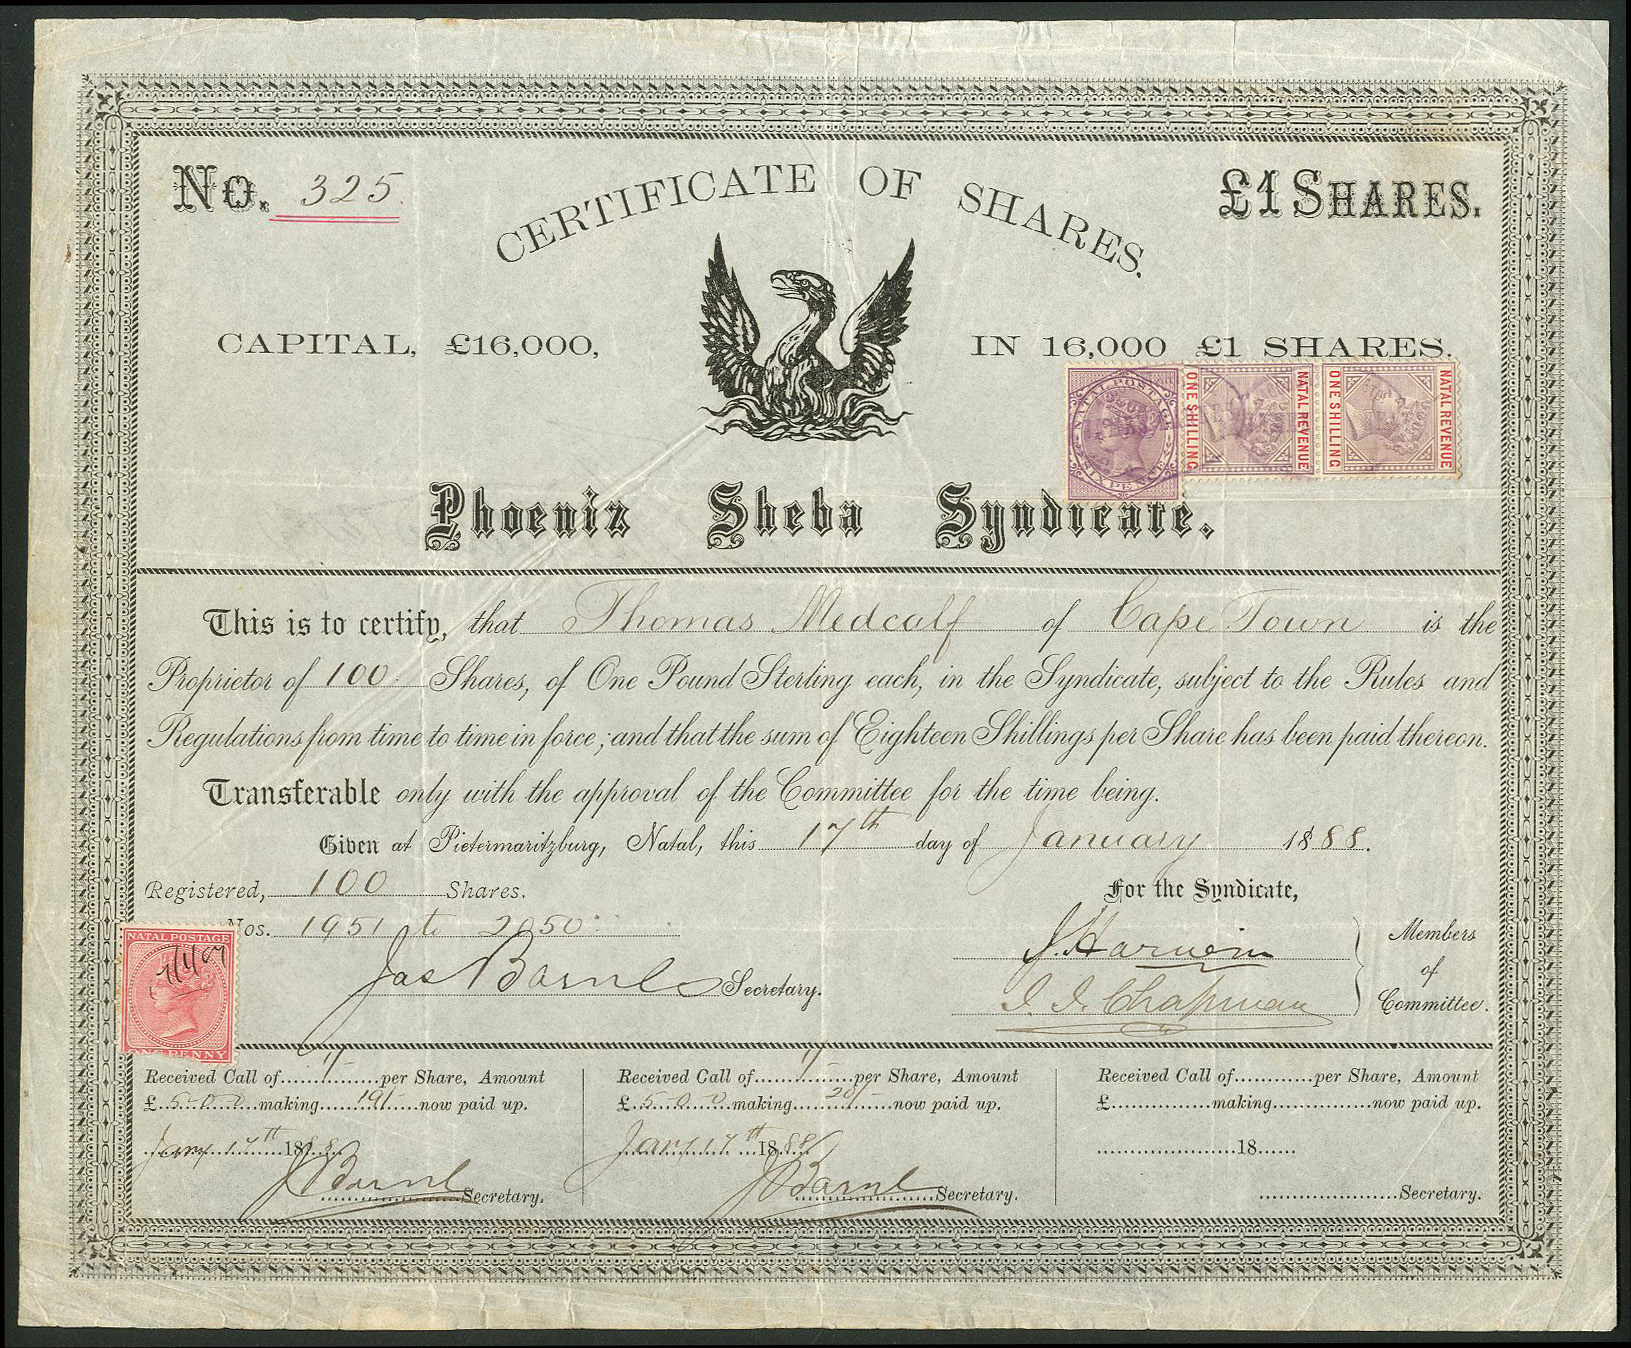 No. 325.
CERTIFICATE OF SHARES.
£1 SHARES.
CAPITAL, £16,000,
IN 16,000 £1 SHARES.
NATAL POSTAGE
SIX PENCE
NATAL REVENUE
ONE SHILLING
NATAL REVENUE
ONE SHILLING
Phoenix Sheba Syndicate.
This is to certify, that Thomas Medcalf of Cape Town is the
Proprietor of 100 Shares, of One Pound Sterling each, in the Syndicate, subject to the Rules and
Regulations from time to time in force; and that the sum of Eighteen Shillings per Share has been paid thereon.
Transferable only with the approval of the Committee for the time being.
Given at Pietermaritzburg, Natal, this 17th day of January 1888.
Registered, 100 Shares.
For the Syndicate,
Nos. 1951 to 2050
NATAL POSTAGE
ONE PENNY
Jas Barnes Secretary.
J. Harwin
J. J. Chapman
Members
of
Committee.
Received Call of 1/- per Share, Amount
£ 5.0.0 making 19/- now paid up.
Jany 17th 1888
J Barnes Secretary.
Received Call of 1/- per Share, Amount
£ 5.0.0 making 20/- now paid up.
Jany 17th 1888
J Barnes Secretary.
Received Call of per Share, Amount
£ making now paid up.
18
Secretary.